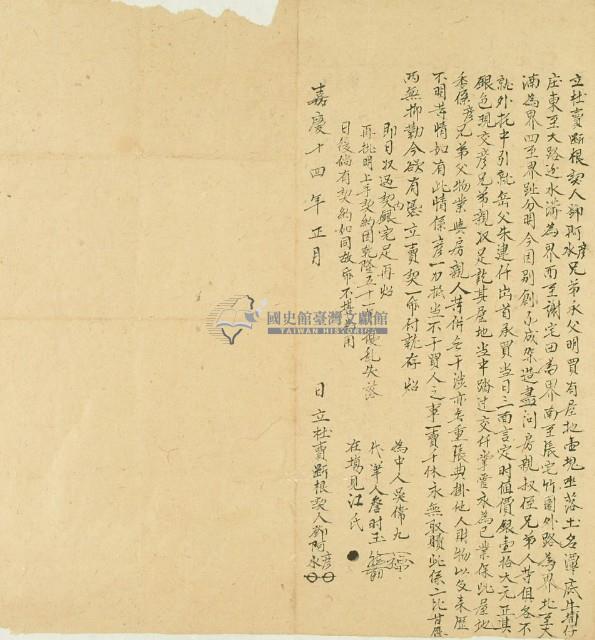 立杜賣斷根契人鄧阿彥水兄弟承父明買有屋地壹塊坐落土名潭底牛埔仔
庄東至大路逐水溝為界西至謝宅田為界南至張宅竹圍外路為界北至大
湳為界四至界趾分明今因別創不成架造盡問房親叔侄兄弟人等俱各不
就外托中引就岳父朱建仟出首承買當日三面言定時值價銀壹拾大元正其
銀色現交彥兄弟親收足訖其屋地当中踏过交仟掌管永為己業保此屋地
係彥兄弟父物業與房親人等併無干涉亦無重張典掛他人財物以及來歷
不明等情如有此情係彥一力抵当不干買人之事一賣千休永無收贖此係二比甘愿
两無抑勒今欲有憑立賣契一帋付執存炤
即日收過契內銀完足再炤
再批明上手契約因乾隆五十一年擾乱失落
日後倘有契約如同故帋不堪為用
為中人吳儒九
代筆人詹时玉
在塲見江氏
嘉慶十四年正月 日立杜賣斷根契人鄧阿彥水
國史館臺灣文獻館
TAIWAN HISTORICA